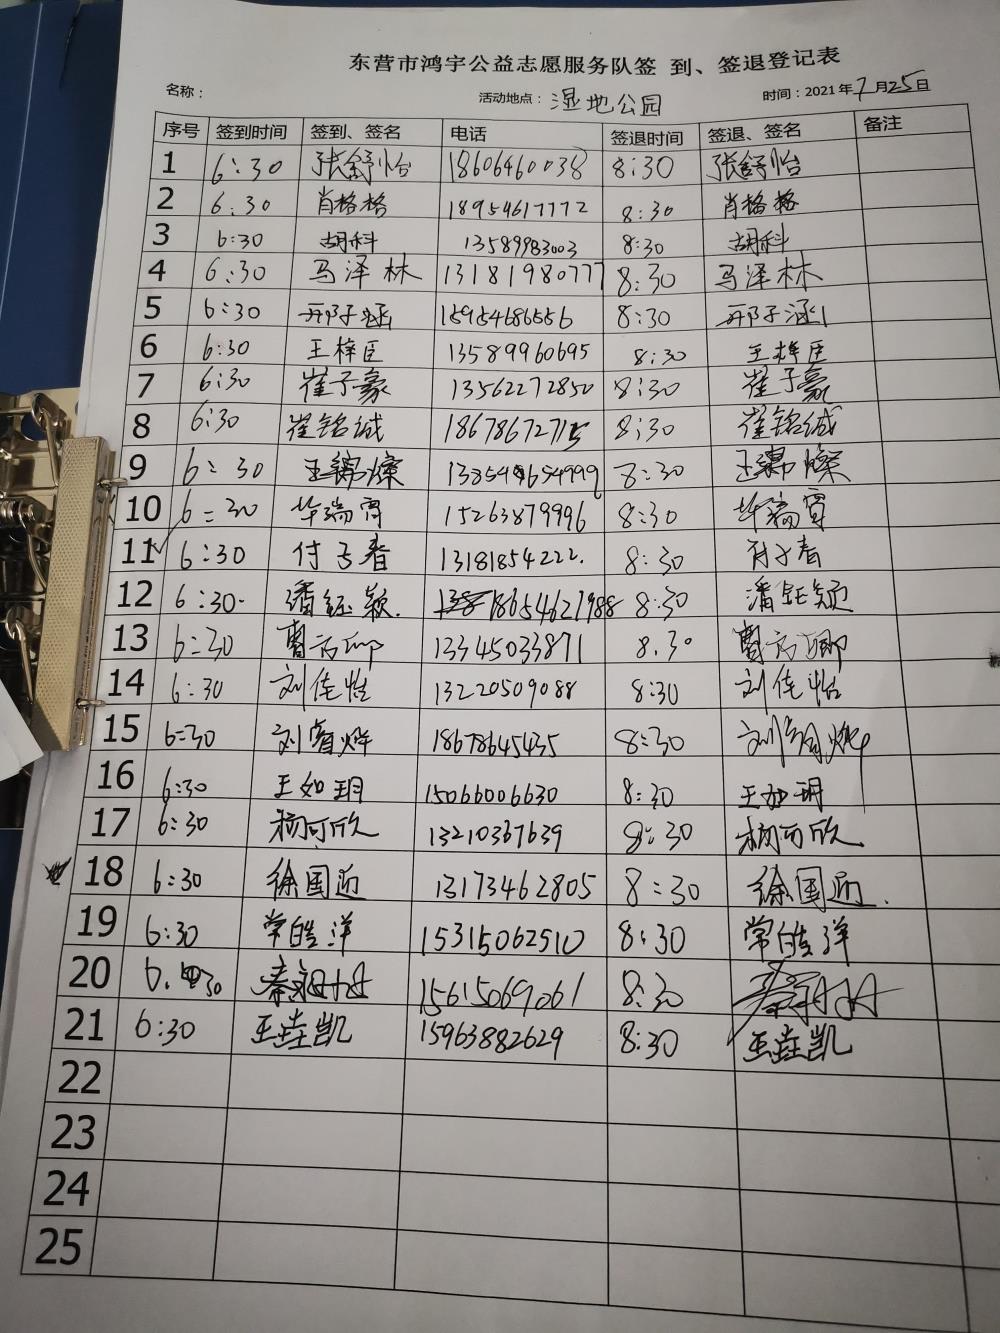 东营市鸿宇公益志愿服务队签 到、签退登记表
名称： 活动地点：湿地公园 时间：2021年7月25日
序号 签到时间 签到、签名 电话 签退时间 签退、签名 备注
1 6:30 张舒怡 18606460038 8:30 张舒怡
2 6:30 肖格格 18954617772 8:30 肖格格
3 6:30 胡科 13589983003 8:30 胡科
4 6:30 马泽林 13181980777 8:30 马泽林
5 6:30 邢子涵 15954686556 8:30 邢子涵
6 6:30 王梓臣 13589960695 8:30 王梓臣
7 6:30 崔子豪 13562272850 8:30 崔子豪
8 6:30 崔铭诚 18678672715 8:30 崔铭诚
9 6:30 王锦燦 8:30 王锦燦
10 6:30 华瑞霄 15263879996 8:30 华瑞霄
11 6:30 付子春 13181854222. 8:30 付子春
12 6:30 潘钰颖. 18654621988 8:30 潘钰颖
13 6:30 13345033871 8.30
14 6:30 刘佳怡 13220509088 8:30 刘佳怡
15 6:30 刘睿烨 18678645435 8:30 刘睿烨
16 6:30 王如玥 15066006630 8:30 王如玥
17 6:30 杨可欣 13210367639 8:30 杨可欣
18 6:30 徐国迎 13173462805 8:30 徐国迎.
19 6:30 常皓洋 15315062510 8:30 常皓洋
20 6.30 15615069061 8:30
21 6:30 王垚凯 15963882629 8:30 王垚凯
22
23
24
25